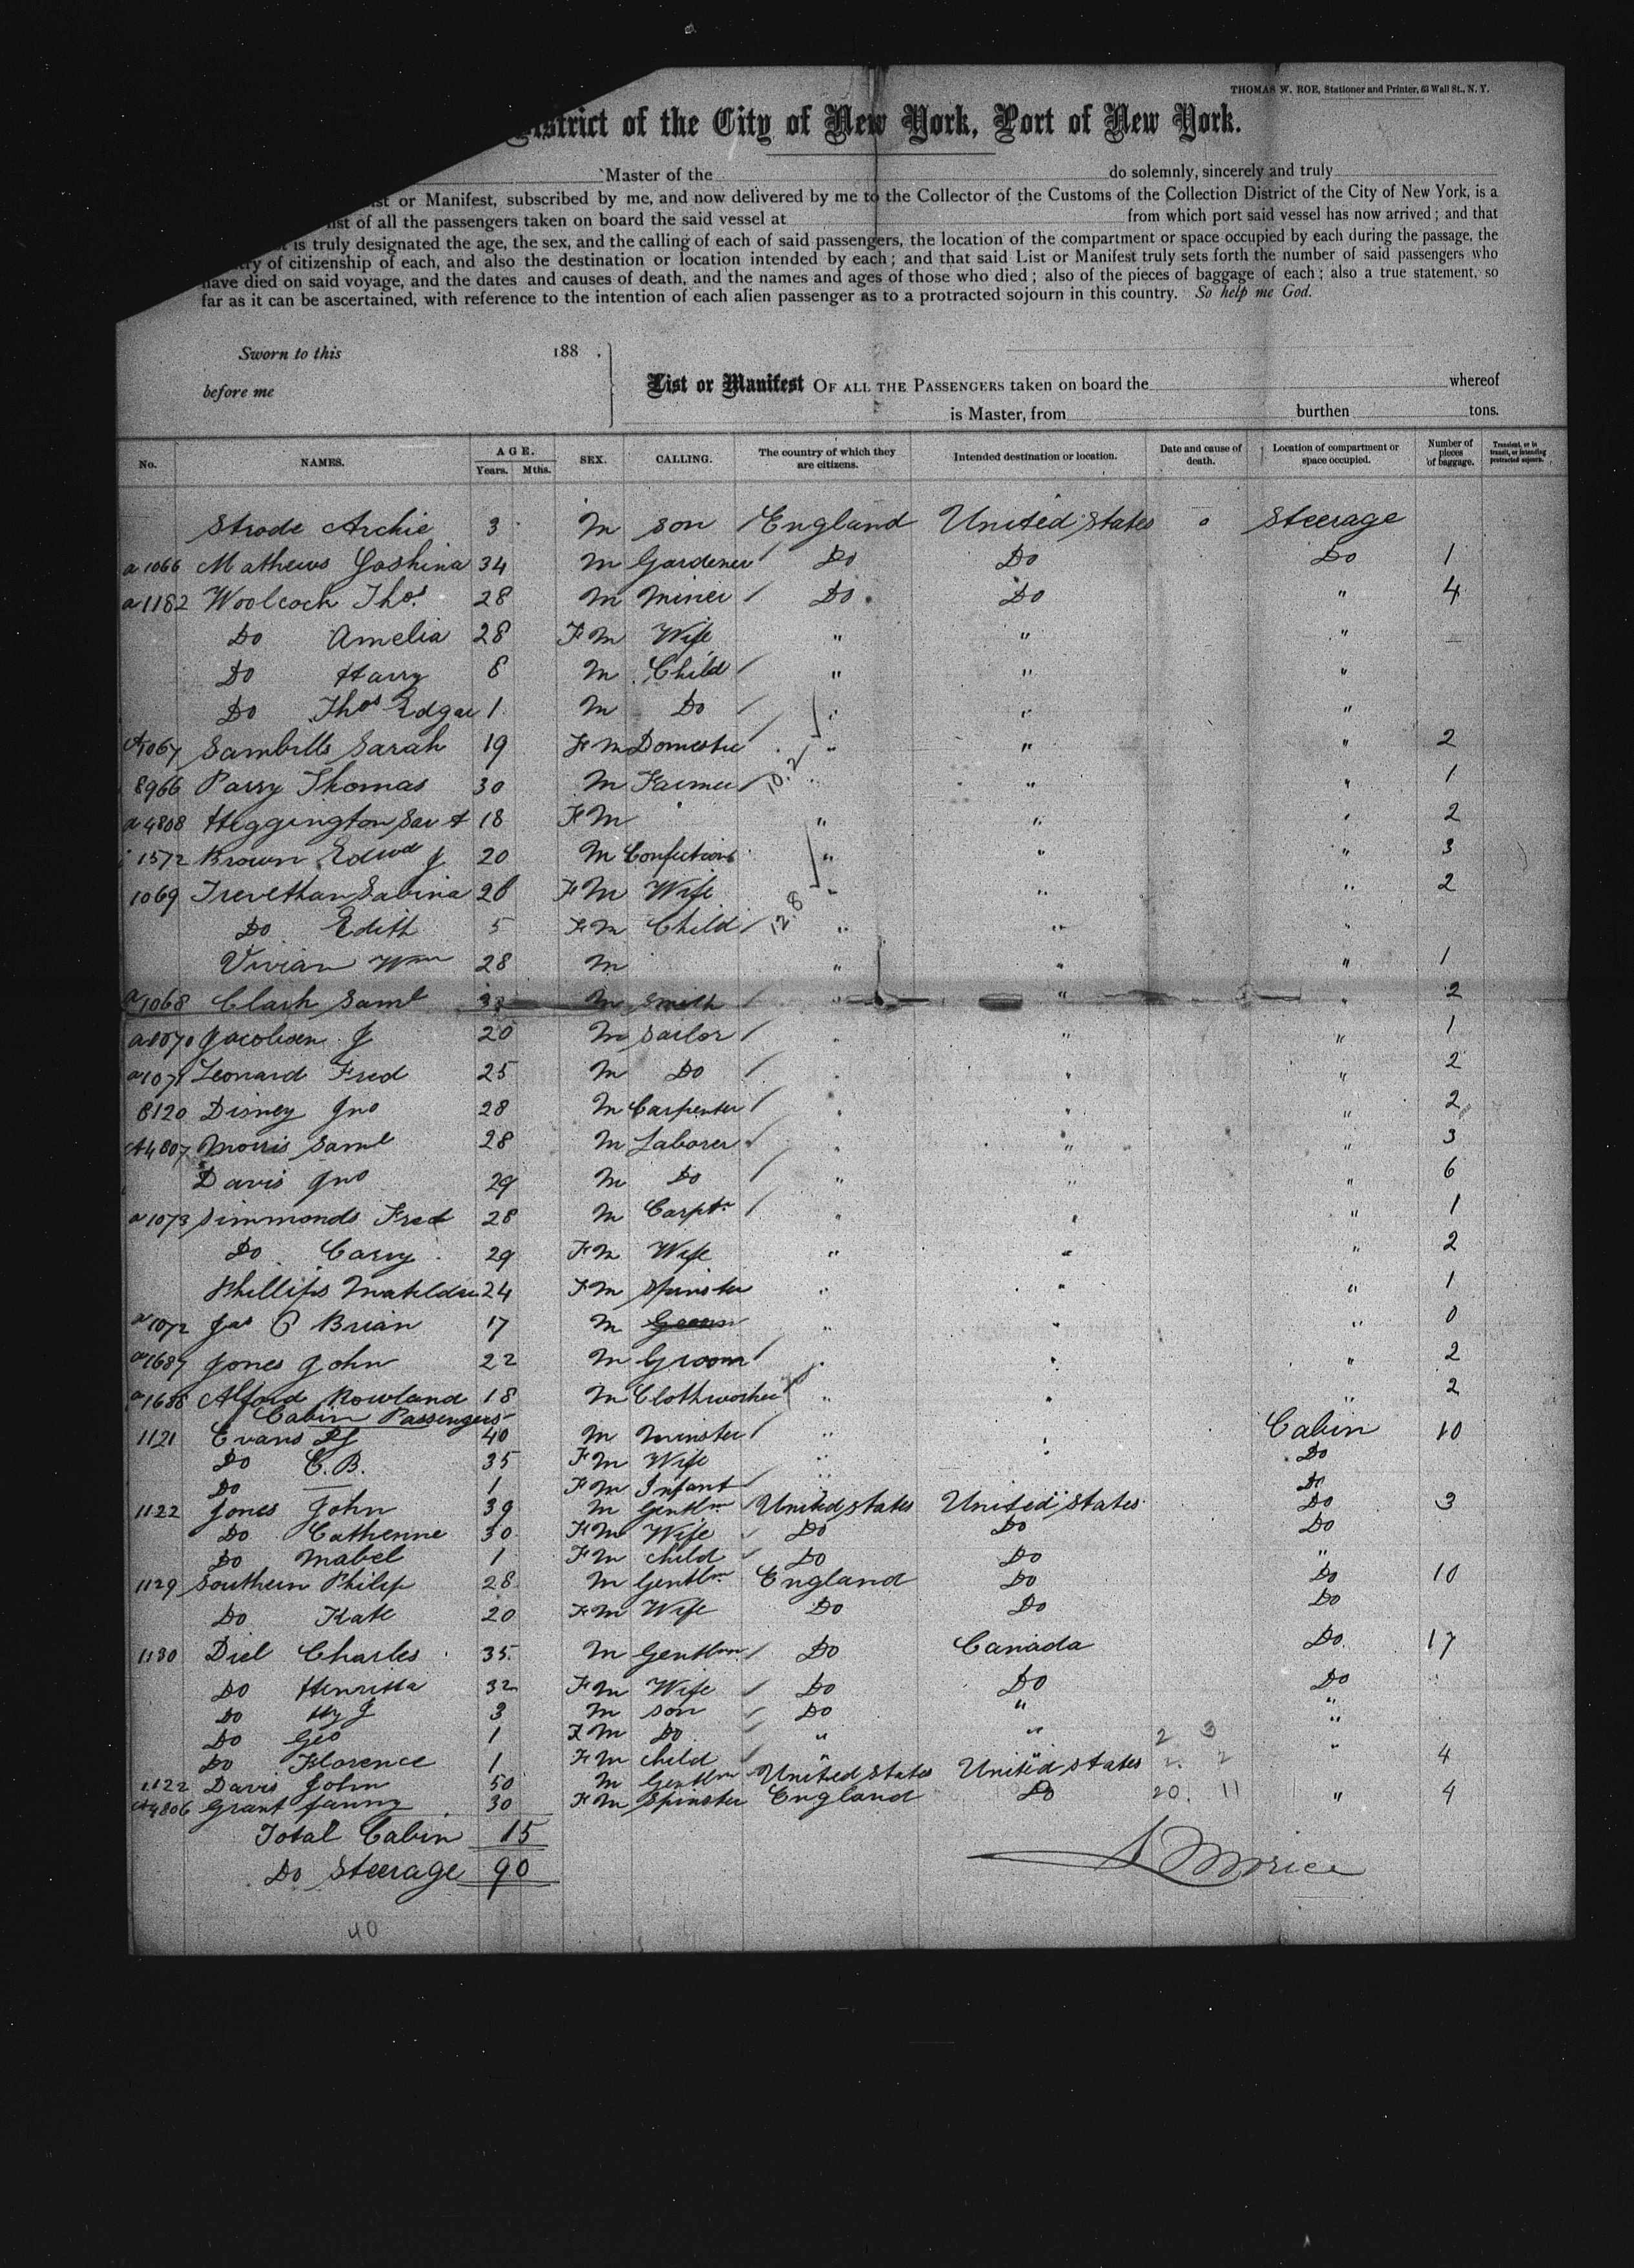 THOMAS W. ROE, Stationer and Printer, 63 Wall St., N. Y.
District of the City of New York, Port of New York.
Master of the do solemnly, sincerely and truly
or Manifest, subscribed by me, and now delivered by me to the Collector of the Customs of the Collection District of the City of New York, is a
of all the passengers taken on board the said vessel at from which port said vessel has now arrived; and that
is truly designated the age, the sex, and the calling of each of said passengers, the location of the compartment or space occupied by each during the passage, the
of citizenship of each, and also the destination or location intended by each; and that said List or Manifest truly sets forth the number of said passengers who
have died on said voyage, and the dates and causes of death, and the names and ages of those who died; also of the pieces of baggage of each; also a true statement, so
far as it can be ascertained, with reference to the intention of each alien passenger as to a protracted sojourn in this country. So help me God.
Sworn to this 188 .
before me
List or Manifest OF ALL THE PASSENGERS taken on board the whereof
is Master, from burthen tons.
No. NAMES. AGE. Years. Mths. SEX. CALLING. The country of which they are citizens. Intended destination or location. Date and cause of death. Location of compartment or space occupied. Number of pieces of baggage. Transient, or in transit, or intending protracted sojourn.
Strode Archie 3 M Son England United States Steerage
a1066 Mathews Joshina 34 M Gardener Do Do Do 1
a1182 Woolcock Thos. 28 M Miner Do Do " 4
Do Amelia 28 F M Wife " " "
Do Harry 8 M Child " " "
Do Thos Edgar 1 M Do " " "
A1067 Sambills Sarah 19 F M Domestic " " " 2
8966 Parry Thomas 30 M Farmer 10.2 " " 1
a4808 Higgington Sar A 18 F M " " " 2
1572 Brown Edwd J 20 M Confection " " " 3
1069 Trevethan Sabina 28 F M Wife " " " 2
Do Edith 5 F M Child 12.8 " " "
Vivian Wm 28 M " " " 1
a1068 Clark Saml M Smith " " " 2
a8070 Jacobsen J 20 M Sailor " " " 1
a1071 Leonard Fred 25 M Do " " " 2
8120 Disney Jno 28 M Carpenter " " " 2
A4807 Morris Saml 28 M Laborer " " " 3
Davis Jno 29 M Do " " " 6
a1073 Simmonds Fred 28 M Carptr " " " 1
Do Carry 29 F M Wife " " " 2
Phillips Matilda 24 F M Spinster " " " 1
a1072 Jas O Brian 17 M " " " 0
a1687 Jones John 22 M Groom " " " 2
a1688 Alford Rowland 18 M Clothworker " " " 2
Cabin Passengers
1121 Evans 40 M Minster " " Cabin 10
Do C.B. 35 F M Wife " " Do
Do — 1 F M Infant " " Do
1122 Jones John 39 M Gentlm United States United States Do 3
Do Catherine 30 F M Wife Do Do Do
Do Mabel 1 F M child Do Do "
1129 Southern Philip 28 M Gentlm England Do Do 10
Do Kate 20 F M Wife Do Do Do
1130 Diel Charles 35 M Gentlm Do Canada Do 17
Do Henritta 32 F M Wife Do Do Do
Do Hy J 3 M Son Do " "
Do Geo 1 F M Do " " 2 3 "
Do Florence 1 F M child " " 2 2 " 4
1122 Davis John 50 M Gentlm United States United States
A4806 Grant Fanny 30 F M Spinster England Do 20. 11 " 4
Total Cabin 15
Do Steerage 90
Morice
40